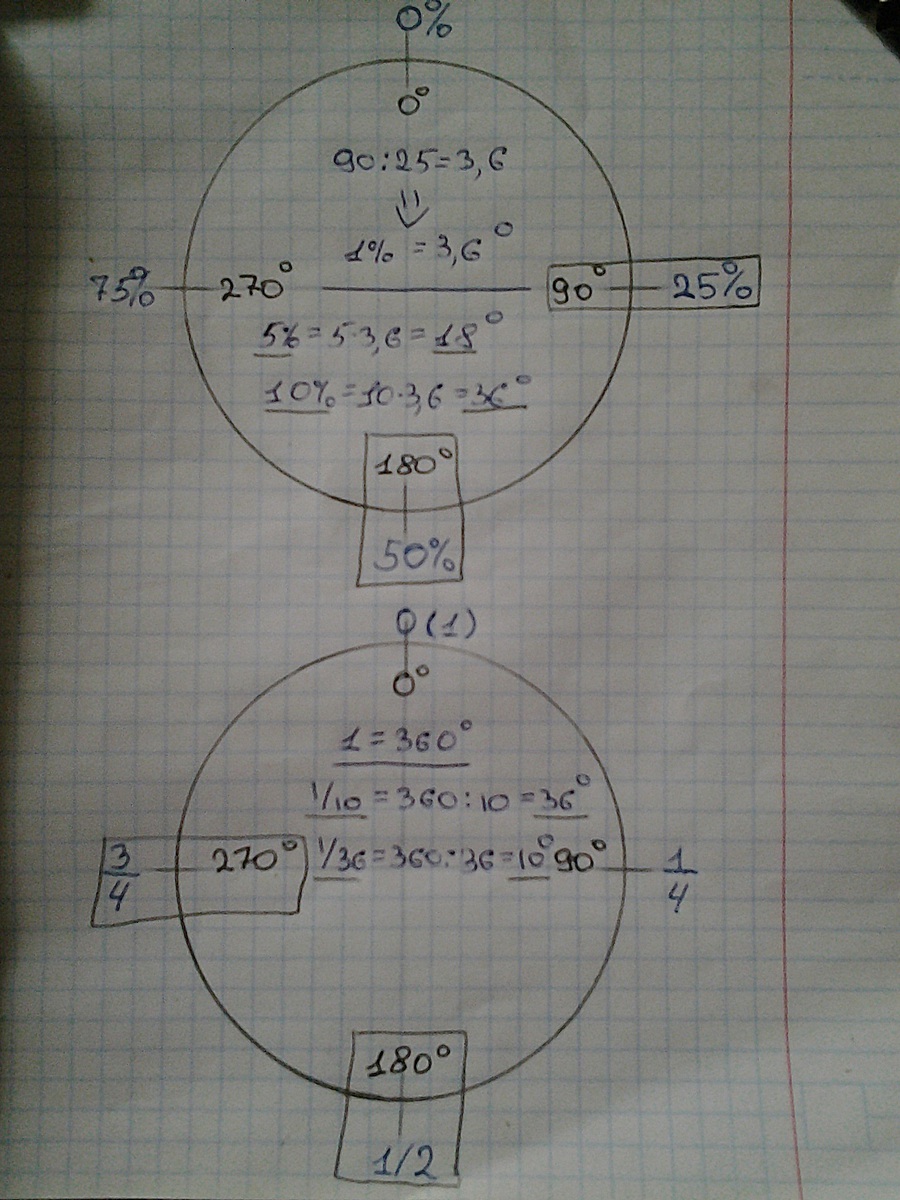 0%
0°
90:25=3,6
⇓
1% = 3,6°
75% 270° 90° 25%
5% = 5·3,6 = 18°
10% = 10·3,6 = 36°
180°
50%
0 (1)
0°
1 = 360°
1/10 = 360:10 = 36°
3/4 270° 1/36 = 360:36 = 10° 90° 1/4
180°
1/2